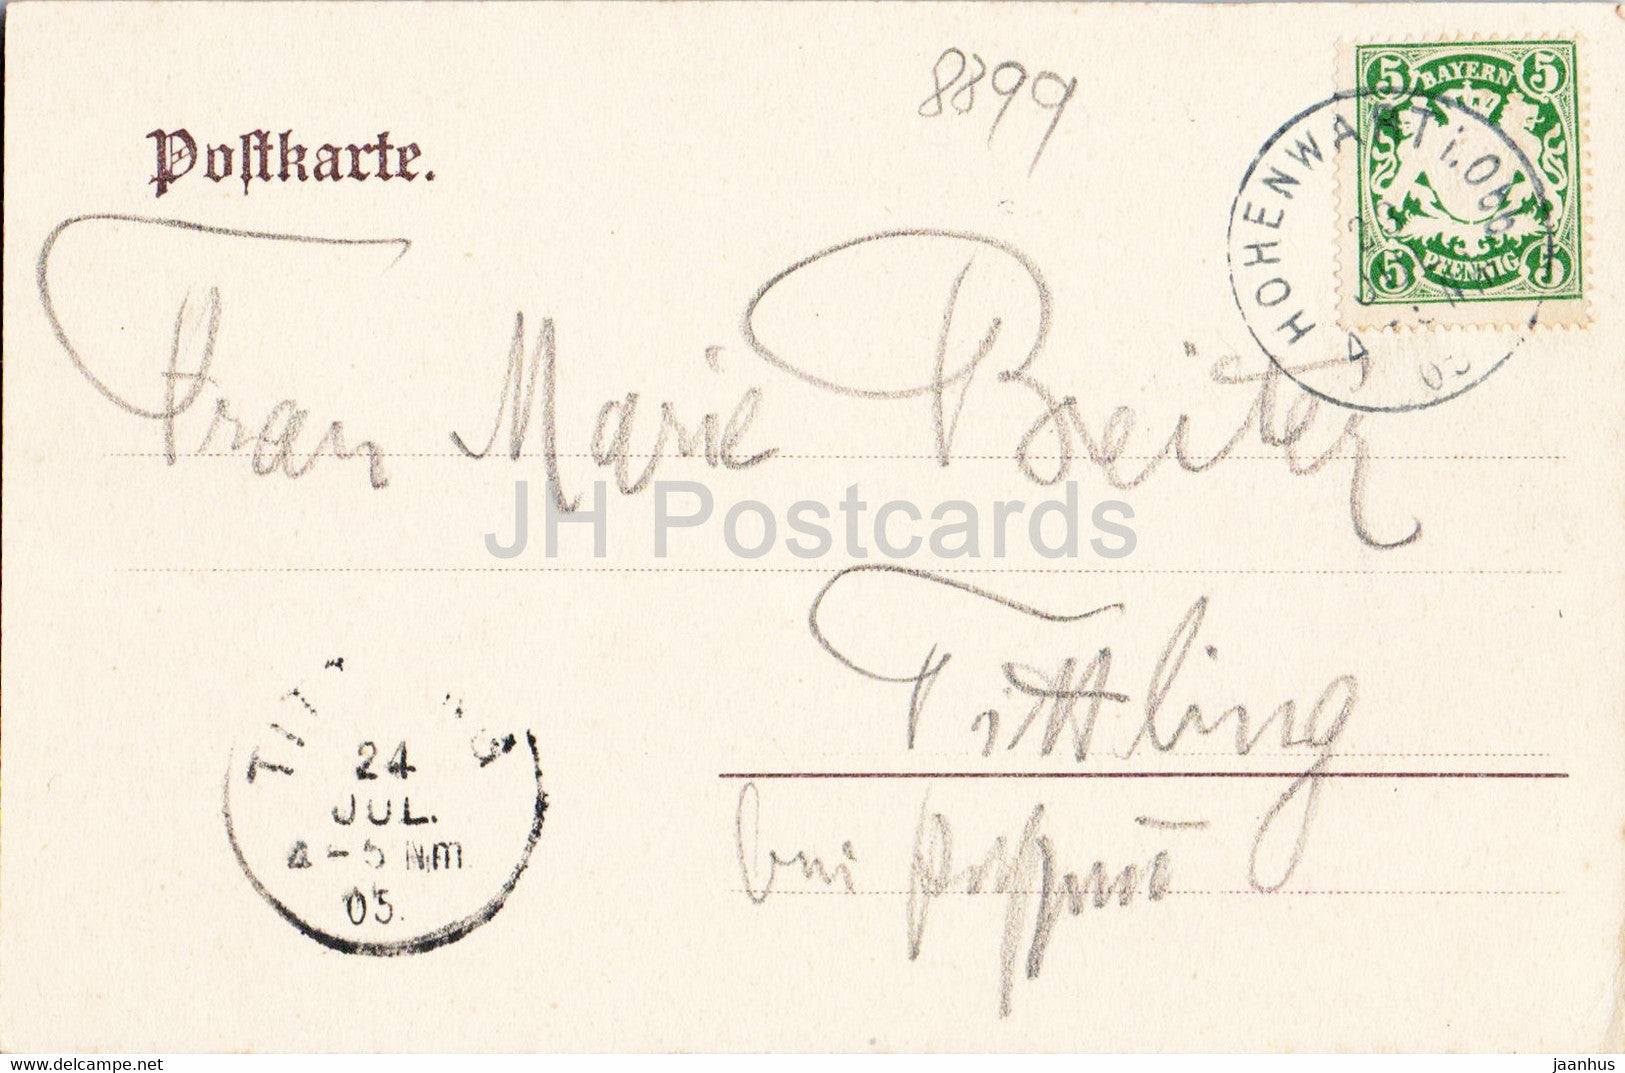 8899
Postkarte.
5 BAYERN 5
5 PFENNIG 5
HOHENWART i. Obb
05
Frau Marie Breiter
JH Postcards
Tittling
bei Passau
24
JUL.
4-5 Nm.
05.
Hosted on HipPostcard
jaanhus